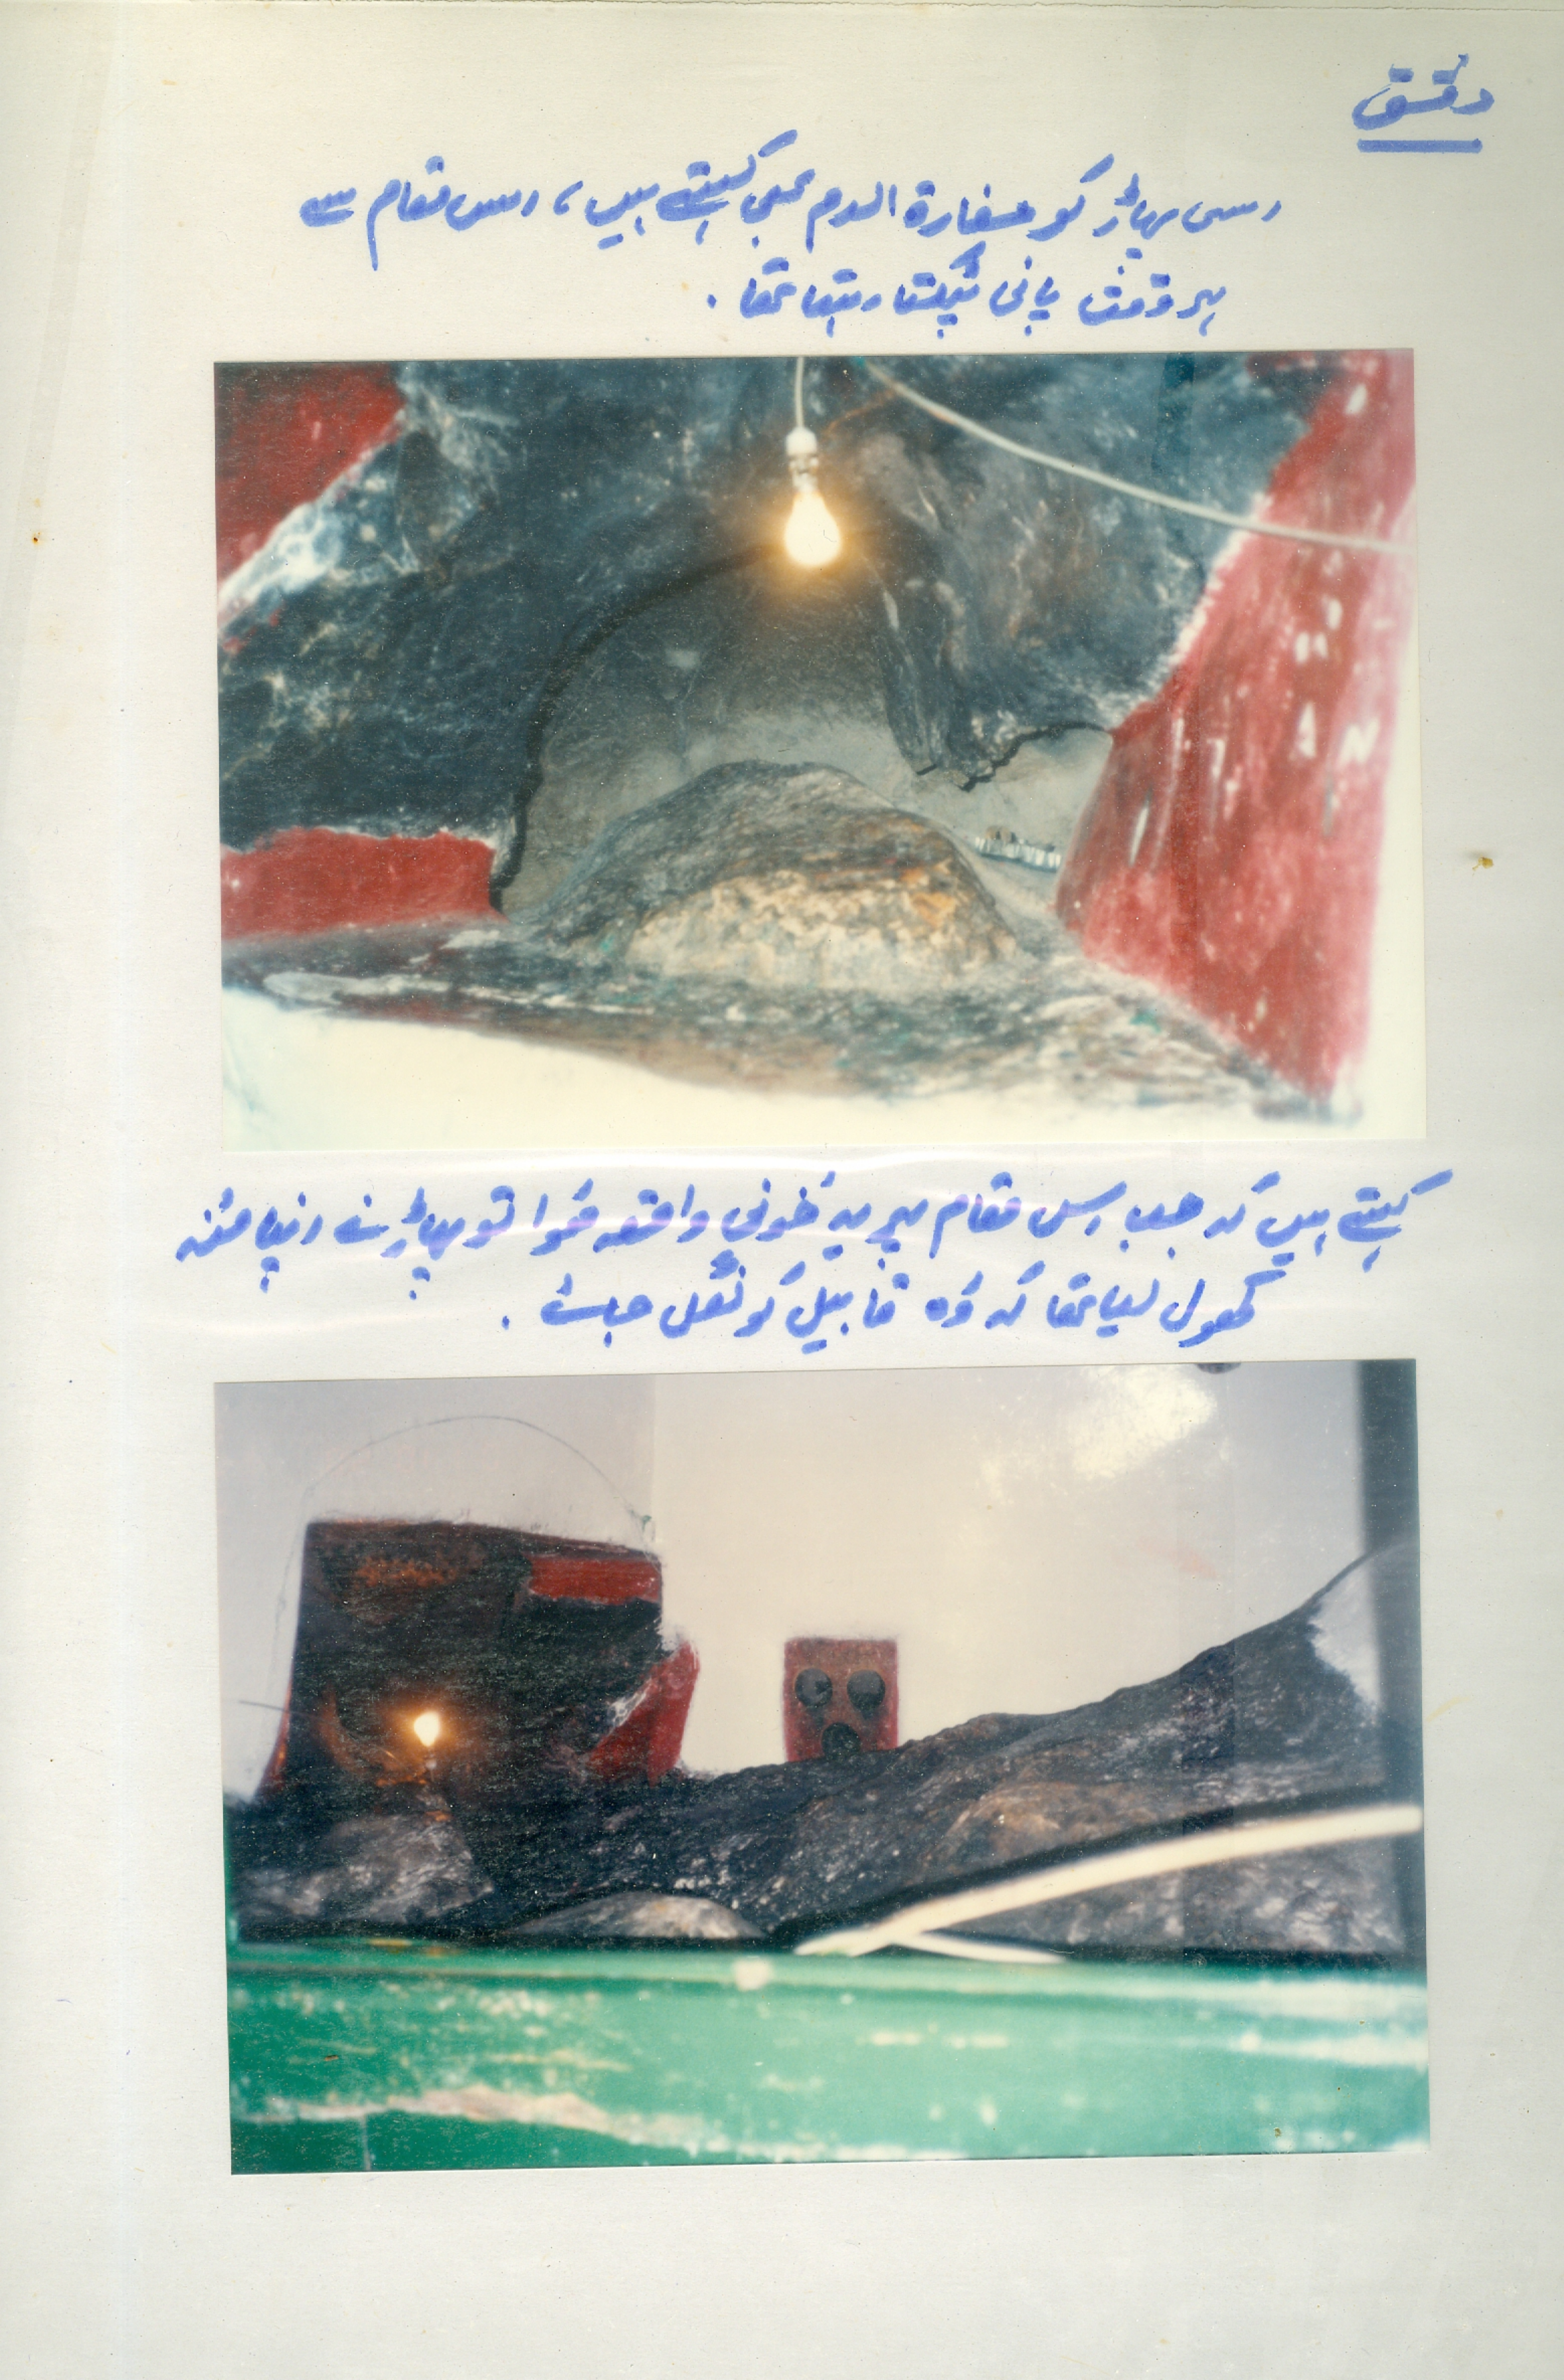 دمشق
اس پہاڑ کو مغارۃ الدم بھی کہتے ہیں، اس مقام سے
ہر وقت پانی ٹپکتا رہتا تھا۔
کہتے ہیں کہ جب اس مقام پر یہ خونی واقعہ ہُوا تو پہاڑ نے اپنا منہ
کھول لیا تھا کہ وُہ قابیل کو نگل جائے۔